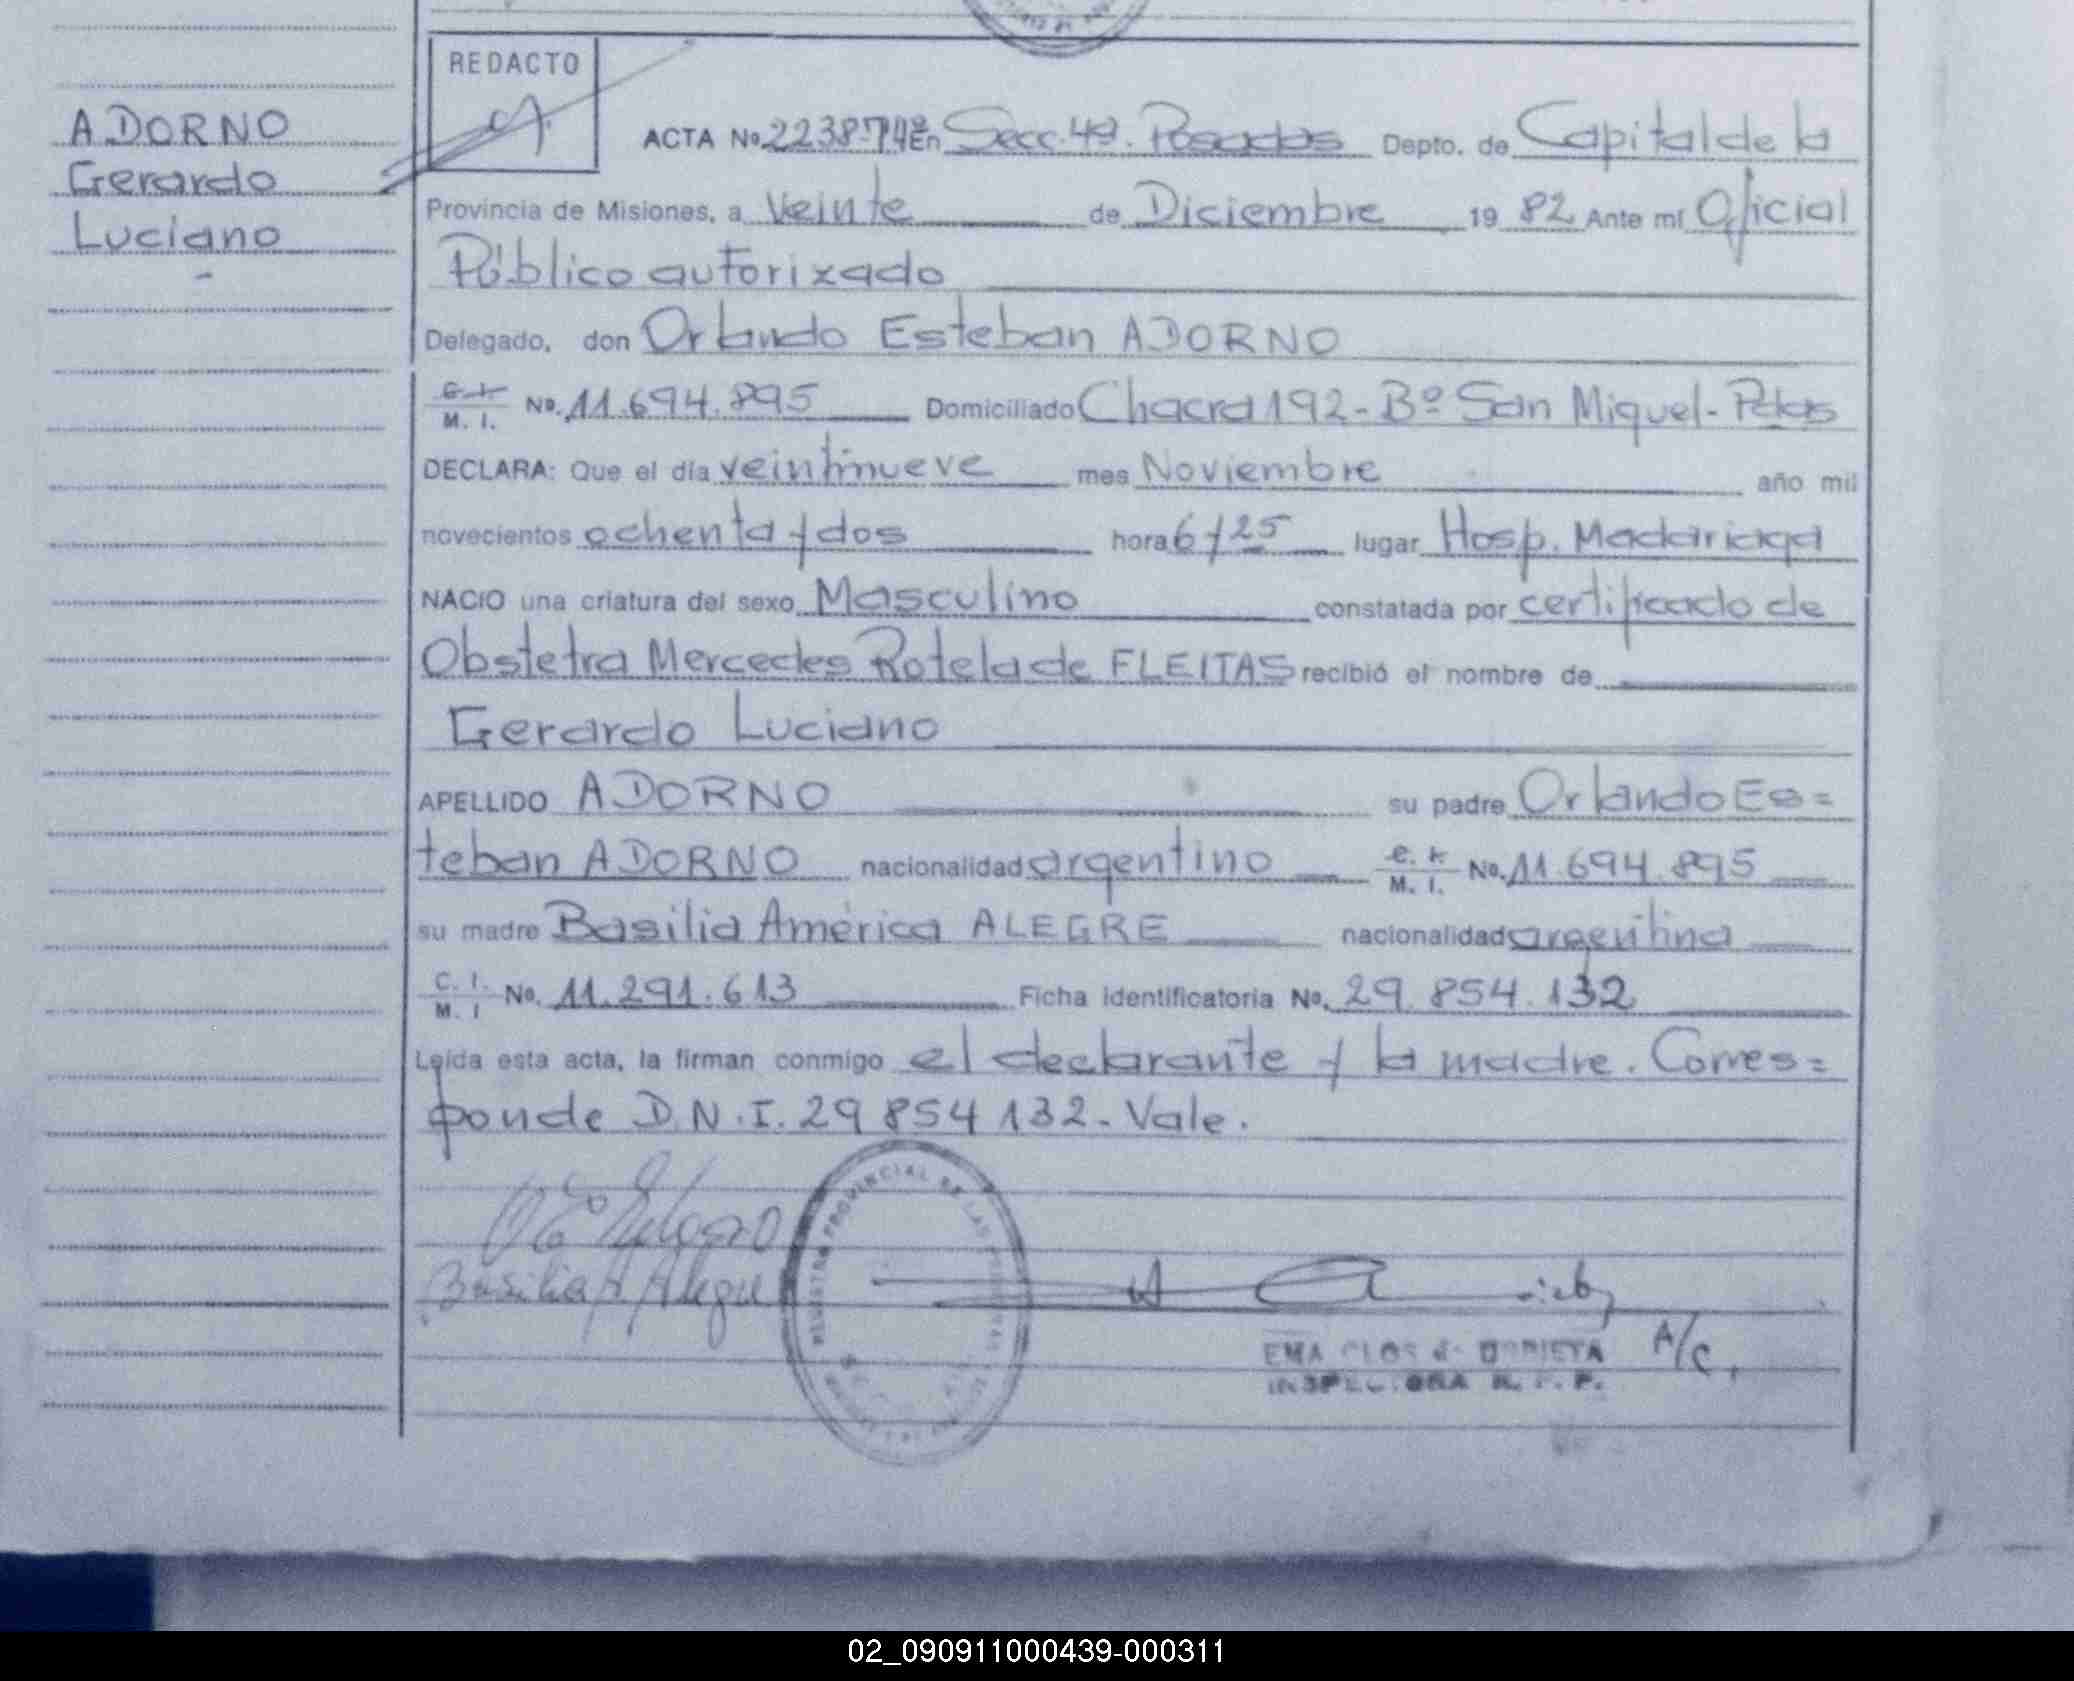 REDACTO
ADORNO
Gerardo
Luciano
ACTA No. 2238-74ª En Secc. 4ª. Posadas Depto. de Capital de la
Provincia de Misiones, a Veinte de Diciembre 19 82 Ante mí Oficial
Público autorizado
Delegado, don Orlando Esteban ADORNO
C. I. M. I. No. 11.694.895 Domiciliado Chacra 192 - Bº San Miguel - Pdas
DECLARA: Que el día veintinueve mes Noviembre año mil
novecientos ochenta y dos hora 6 y 25 lugar Hosp. Madariaga
NACIO una criatura del sexo Masculino constatada por certificado de
Obstetra Mercedes Rotela de FLEITAS recibió el nombre de
Gerardo Luciano
APELLIDO ADORNO su padre Orlando Es=
teban ADORNO nacionalidad argentino C. I. M. I. No. 11.694.895
su madre Basilia América ALEGRE nacionalidad argentina
C. I. M. I No. 11.291.613 Ficha identificatoria No. 29.854.132
Leída esta acta, la firman conmigo el declarante y la madre. Corres=
ponde D.N.I. 29 854 132 - Vale.
Basilia A. Alegre
REGISTRO PROVINCIAL DE LAS PERSONAS
A/C.
EMA
INSPECTORA R. P. P.
02_090911000439-000311